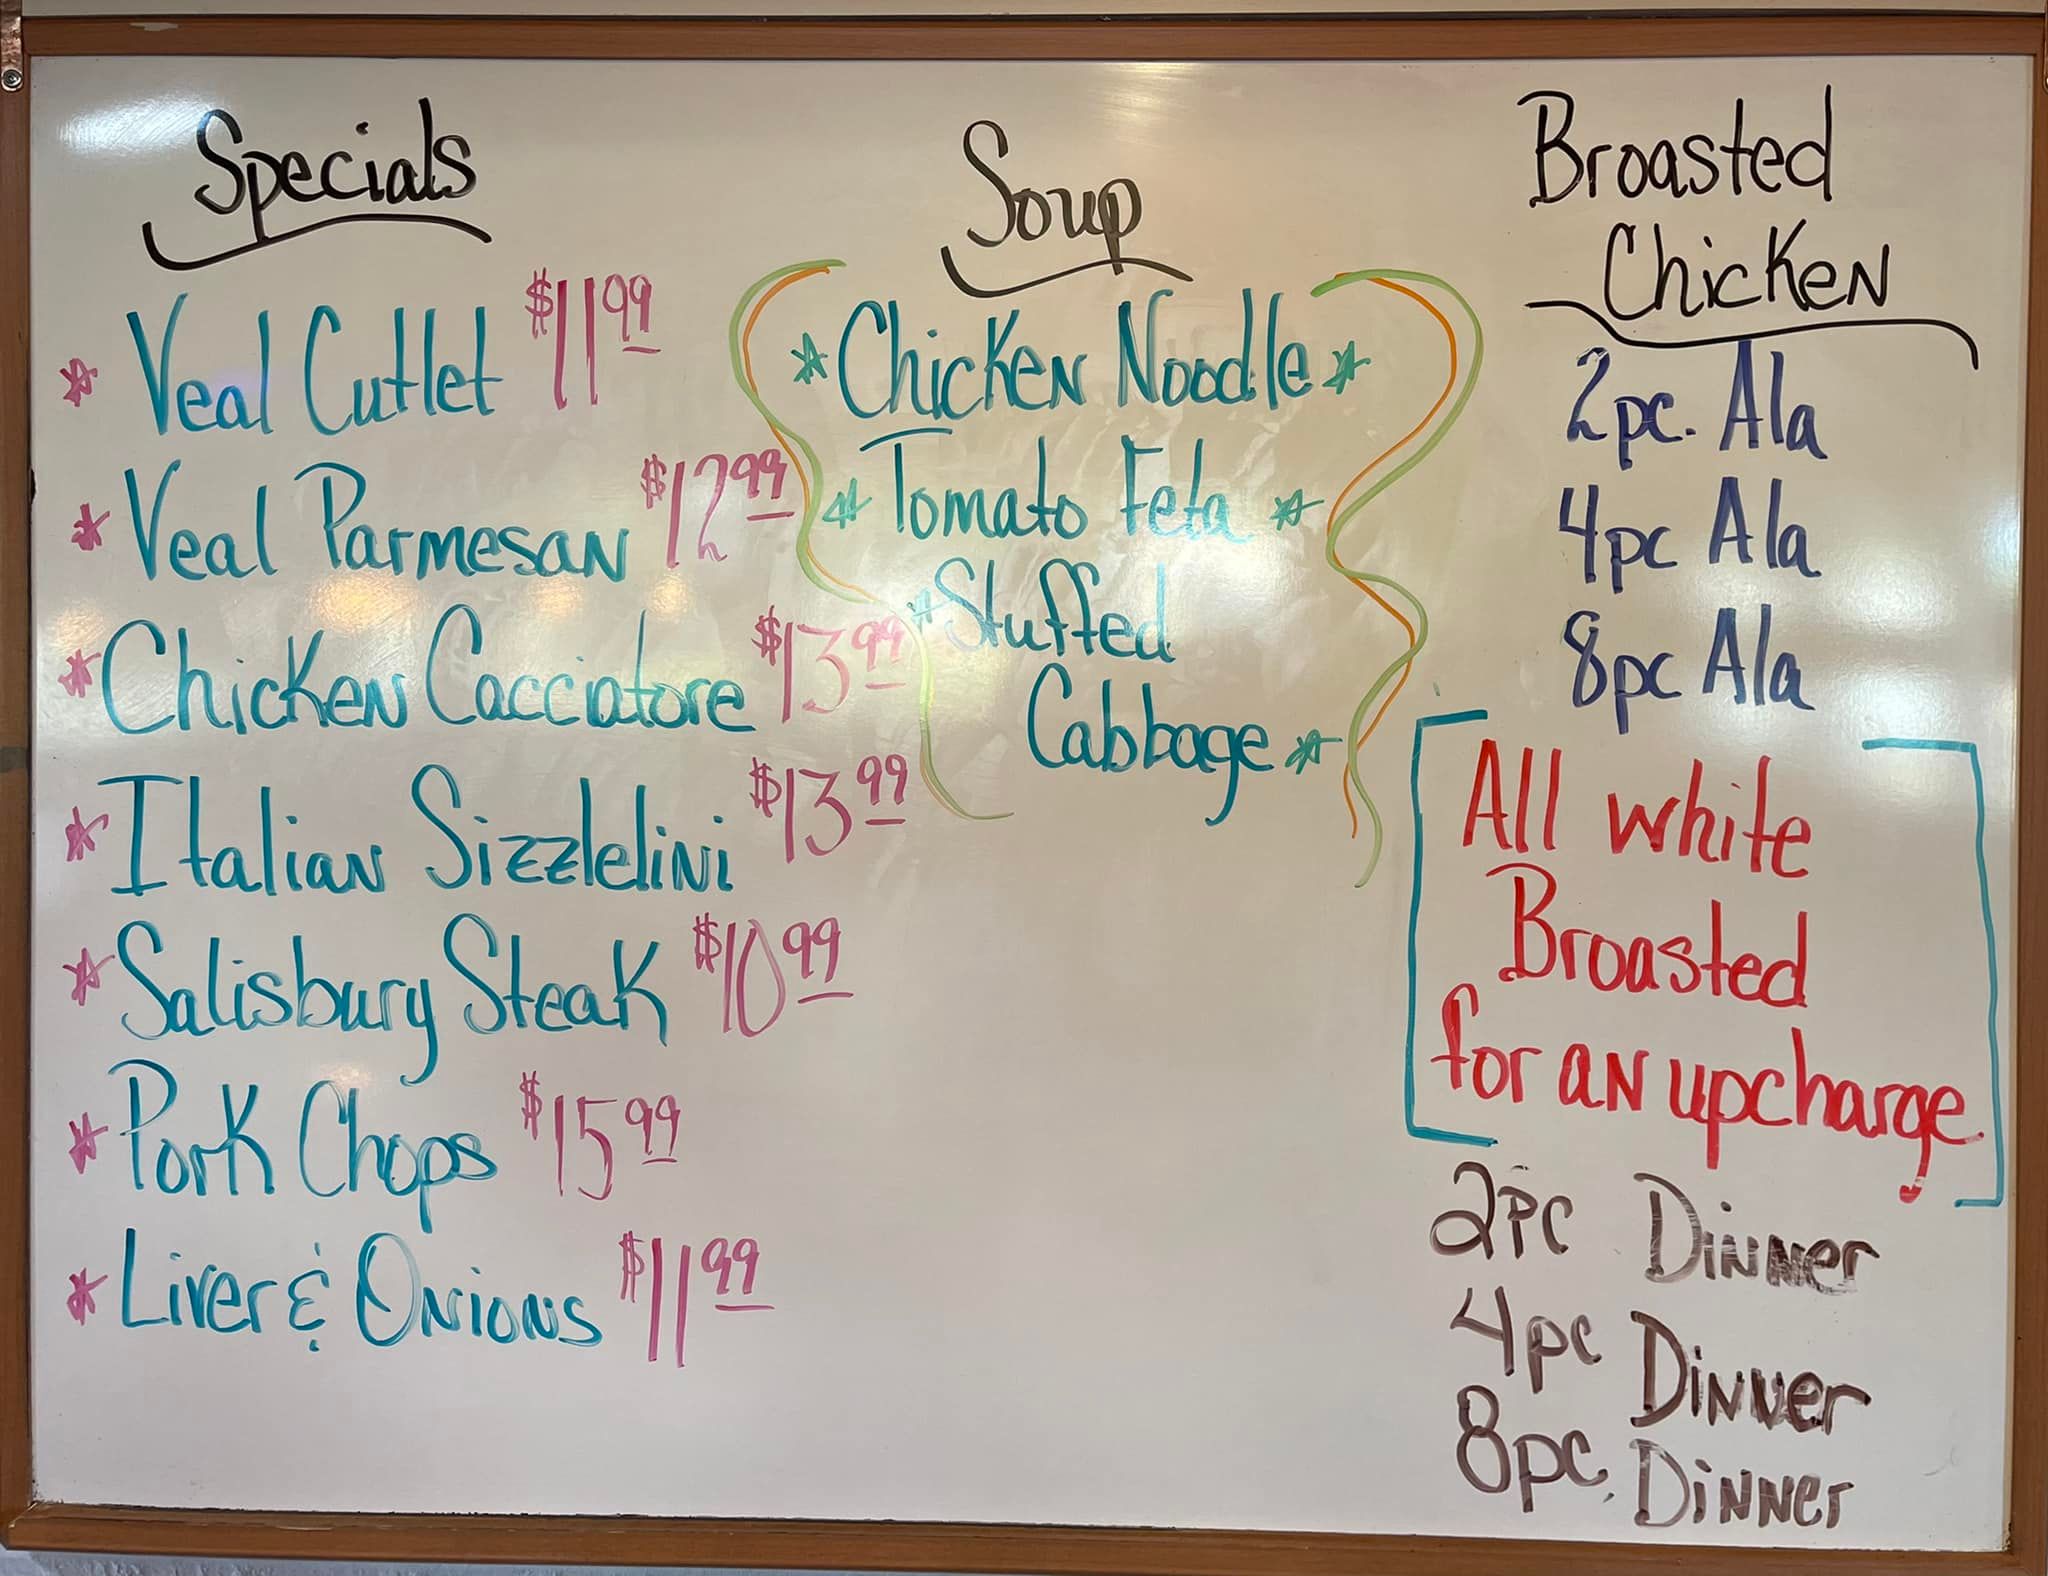 Specials
Veal Cutlet $11.99
Veal Parmesan $12.99
Chicken Cacciatore $13.99
Italian Sizzlelini $13.99
Salisbury Steak $10.99
Pork Chops $15.99
Liver & Onions $11.99
Soup
Chicken Noodle
Tomato Feta
Stuffed
Cabbage
Broasted
Chicken
2pc. Ala
4pc Ala
8pc Ala
All white
Broasted
for an upcharge.
2pc Dinner
4pc Dinner
8pc. Dinner